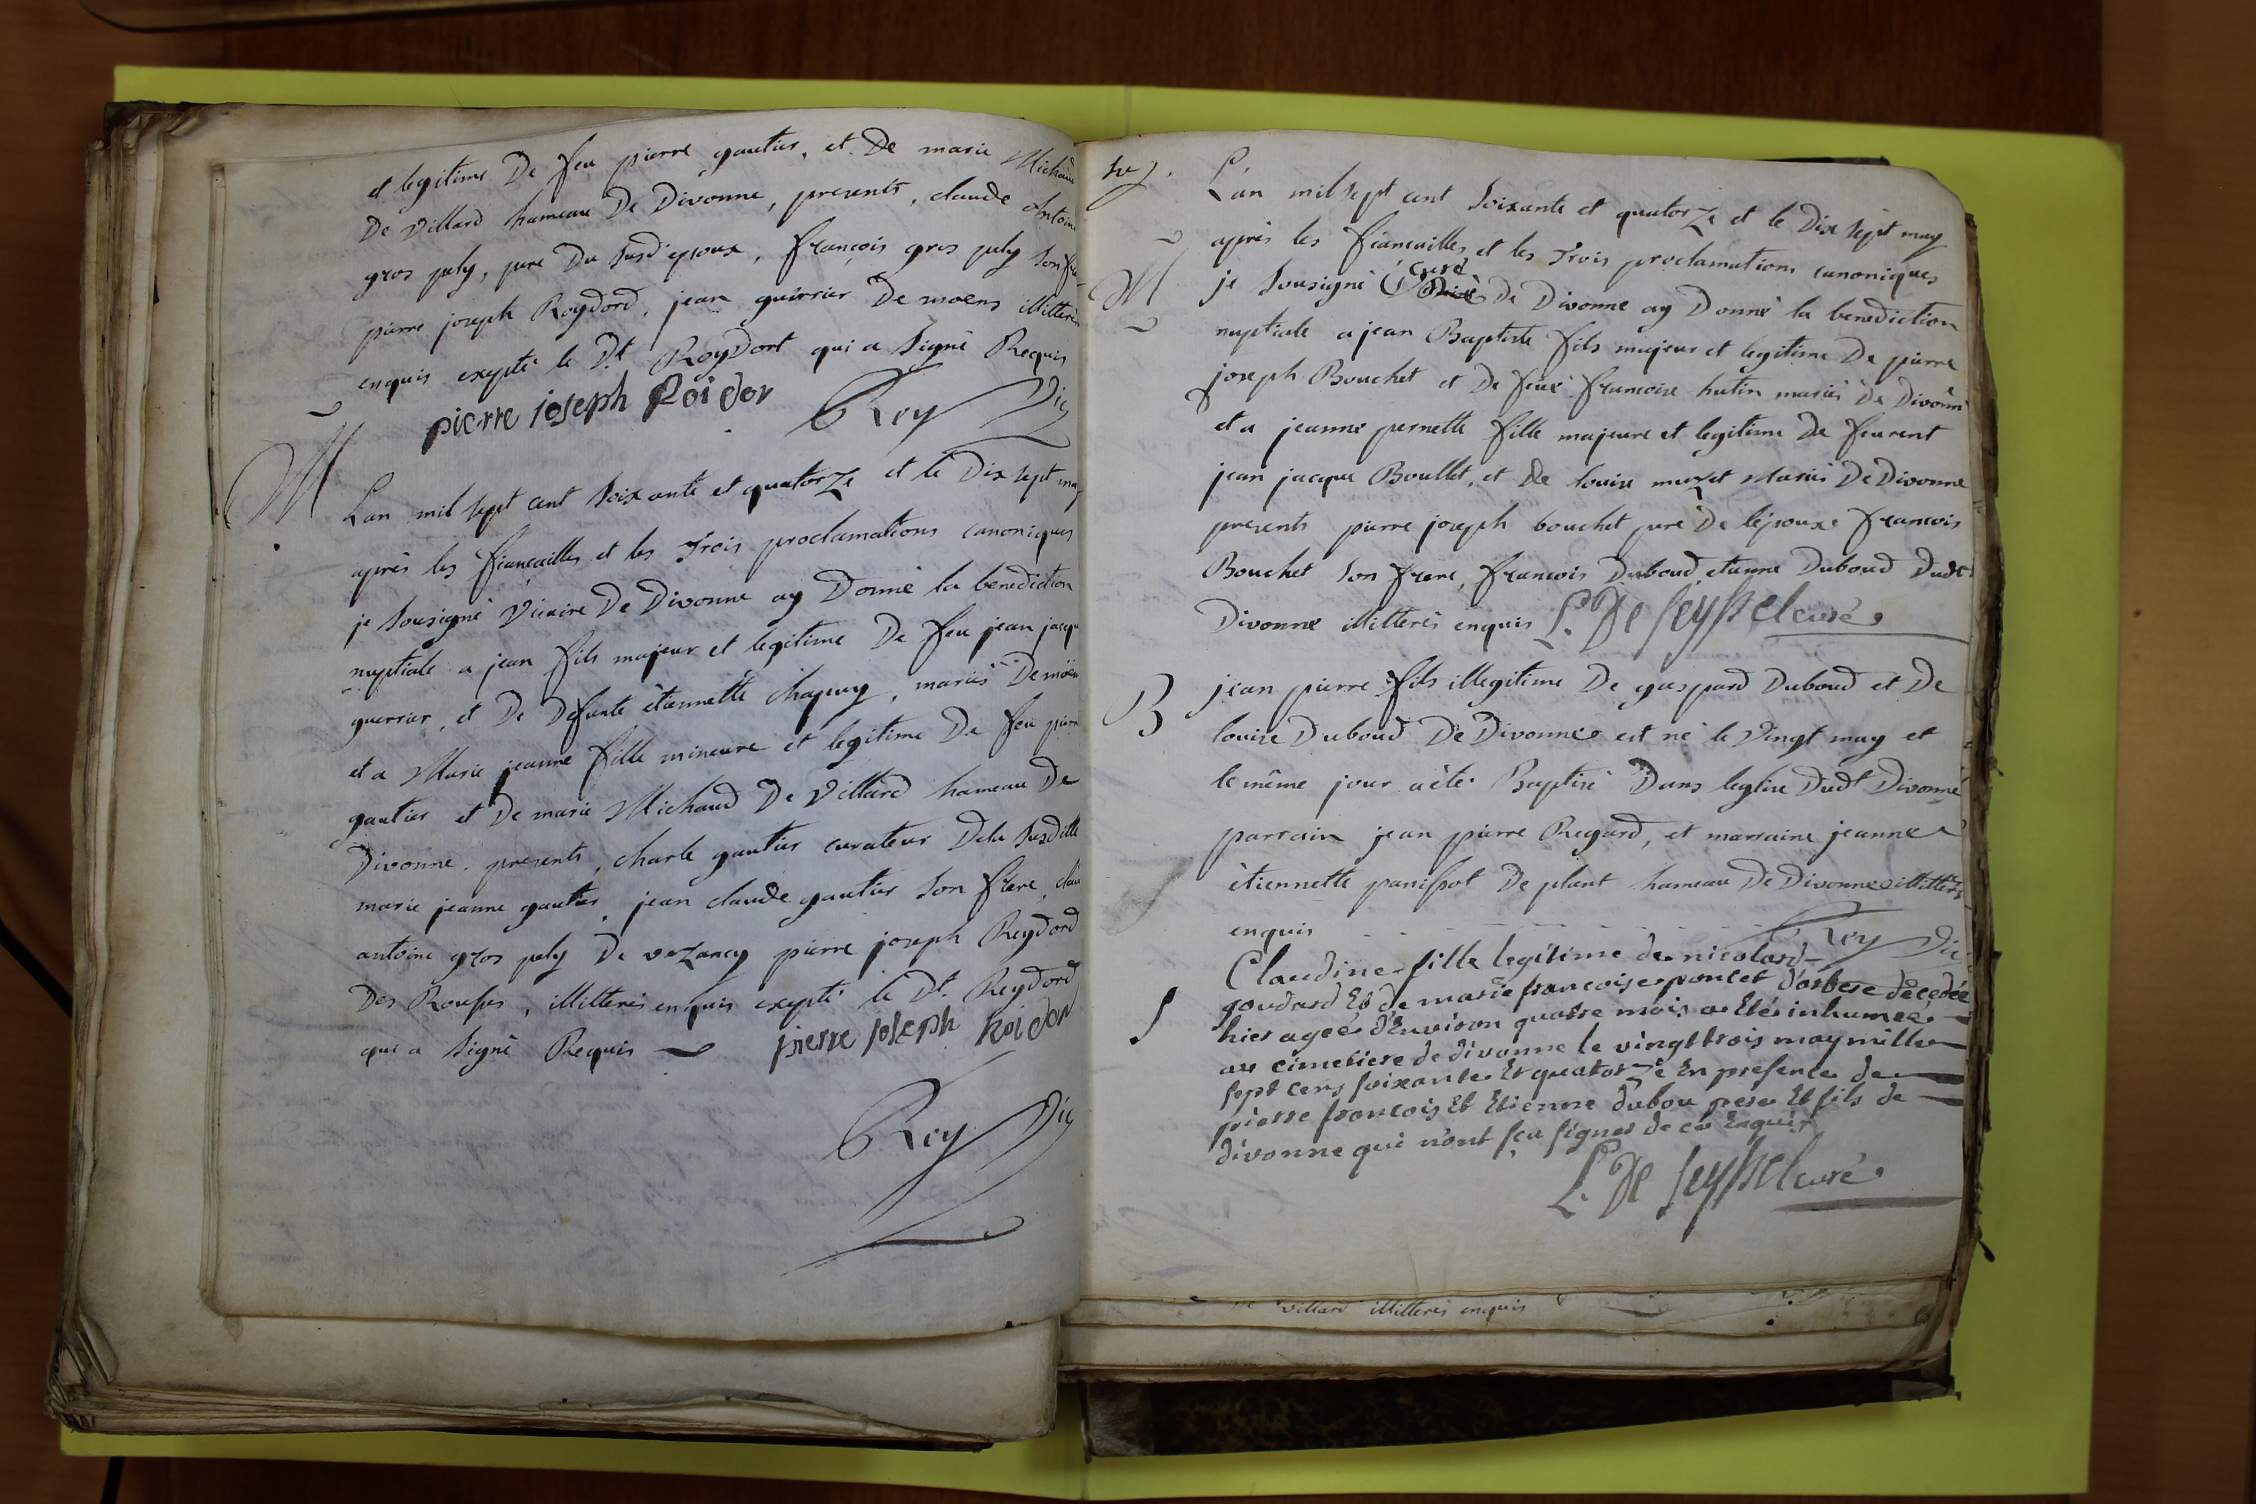 et legitime De feu pierre gautier, et De marie Michaud
De villard hameau De Divonne, presents, claude Antoine
gros pely, pere Du susd epoux, françois gros pely son
pierre joseph Roydord, jean guerrier De moens illitterés
enquis exepté le Dt. RoyDort qui a signé Requis
pierre joseph Roidor Rey Vic
M
Lan mil sept cent soixante et quatorze et le Dix sept may
après les fiancailles et les Trois proclamations canoniques
je sousigné Vicaire De Divonne ay Donné la benediction
nuptiale a jean fils majeur et legitime De feu jean jacque
guerrier, et De Defunte étiennette chapuy, mariés De moen
et a Marie jeanne fille mineure et legitime De feu pierre
gautier et De marie Michaud De Villard hameau De
Divonne. presents, charle gautier curateur Dela susditte
marie jeanne gautier, jean claude gautier son frere,
antoine gros pely De vezancy pierre joseph Reydord
Des Rousses, illitterés enquis exepté le Dt. Reydord
qui a signé Requis pierre joseph Roidor
Rey Vic
L'an mil sept cent soixante et quatorze et le Dix sept may
après les fiancailles et les Trois proclamations canoniques
M
je sousigné curé De Divonne ay Donné la benediction
nuptiale a jean Baptiste fils majeur et legitime De pierre
joseph Bouchet et De feüe francoise hutin mariés De Divonne
et a jeanne pernette fille majeure et legitime De feu
jean jacque Boullet, et De louise muzet Mariés De Divonne
presents pierre joseph bouchet pere De lépoux francois
Bouchet son frere, francois Duboud, etienne Duboud Dudt
Divonne illitterés enquis L. De Seyssel curé
B
jean pierre fils illegitime De gaspard Duboud et De
louise Duboud De Divonne est né le vingt may et
le même jour a été Baptisé Dans leglise Dudt Divonne
parrain jean pierre Regard, et marraine jeanne
étiennette panissot De plant hameau De Divonne illitterés
enquis Rey Vic
S
Claudine fille legitime de nicolard
goudard Et de marie francoise poncet d'arbere décedée
hier ageé d'Environ quatre mois a Eté inhumee
au cimetiere de divonne le vingt trois may mille
sept cens soixante Et quatorze En presence de
pierre francois Et Etienne dubou pere Et fils de
divonne qui n'ont sçu signer de ce Enquis
L. De Seyssel curé
villard illitterés enquis